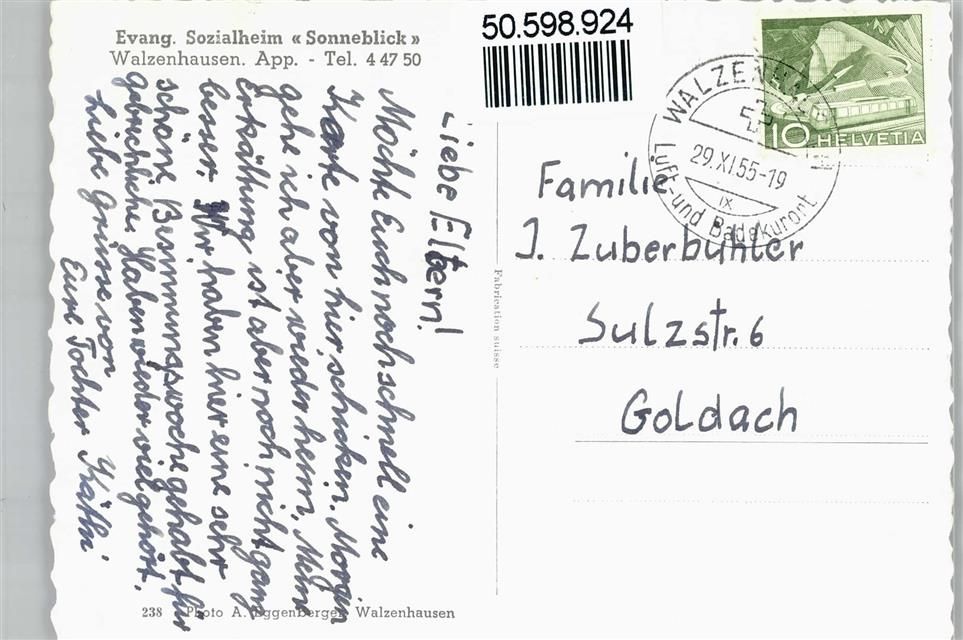 Evang. Sozialheim « Sonneblick »
Walzenhausen. App. - Tel. 4 47 50
50.598.924
HELVETIA
10
WALZENHAUSEN
29.XI.55-19
IX
Luft- und Badekurort
Liebe Eltern!
Möchte Euch noch schnell eine
Karte von hier schicken. Morgen
gehe ich aber wieder heim. Mein
Erkältung ist aber noch nicht ganz
besser. Wir haben hier eine sehr
schöne Besinnungswoche gehabt für
gebrechliche. Haben wieder viel gehört.
Liebe Grüsse von
Eure Tochter Käthi
Familie
J. Zuberbühler
Sulzstr. 6
Goldach
Fabrication suisse
238 Photo A. Eggenberger Walzenhausen